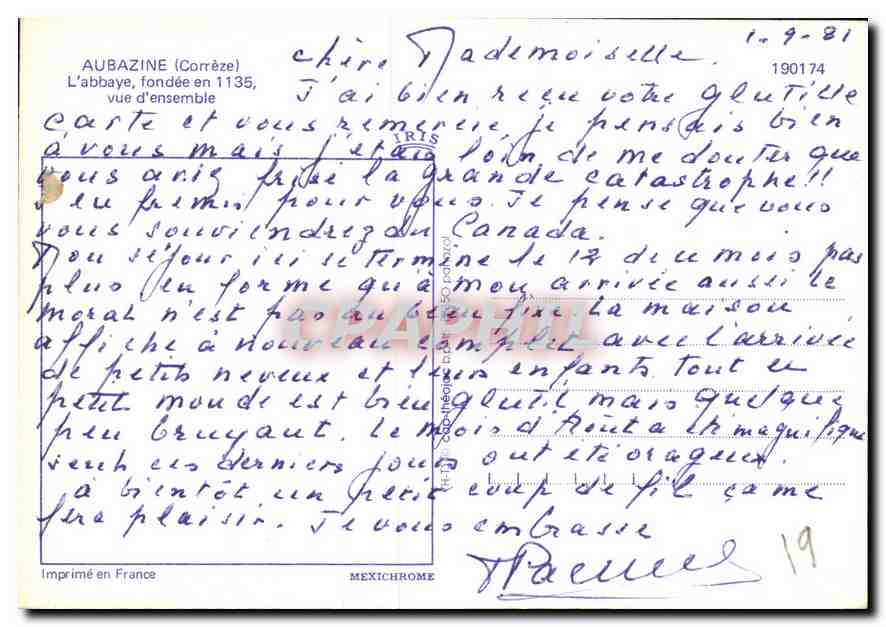 1-9-81
AUBAZINE (Corrèze)
L'abbaye, fondée en 1135,
vue d'ensemble
190174
Chère Mademoiselle.
J'ai bien reçu votre glutille
carte et vous remercie, je pensais bien
IRIS
à vous mais j'étais loin de me douter que
vous aviez frisé la grande catastrophe!!
J'en frémis pour vous. Je pense que vous
vous souviendrez du Canada.
Mon séjour ici se termine le 12 du mois pas
plus en forme qu'à mon arrivée aussi le
moral n'est pas au beau fixe. La maison
affiche à nouveau complet avec l'arrivée
de petits neveux et leurs enfants. Tout ce
petit monde est bien glutil mais quelque
peu bruyant. Le mois d'Août a été magnifique
seuls ces derniers jours ont été orageux.
à bientôt un petit coup de fil ça me
fera plaisir. Je vous embrasse
19
CPARAMA
Imprimé en France
MEXICHROME